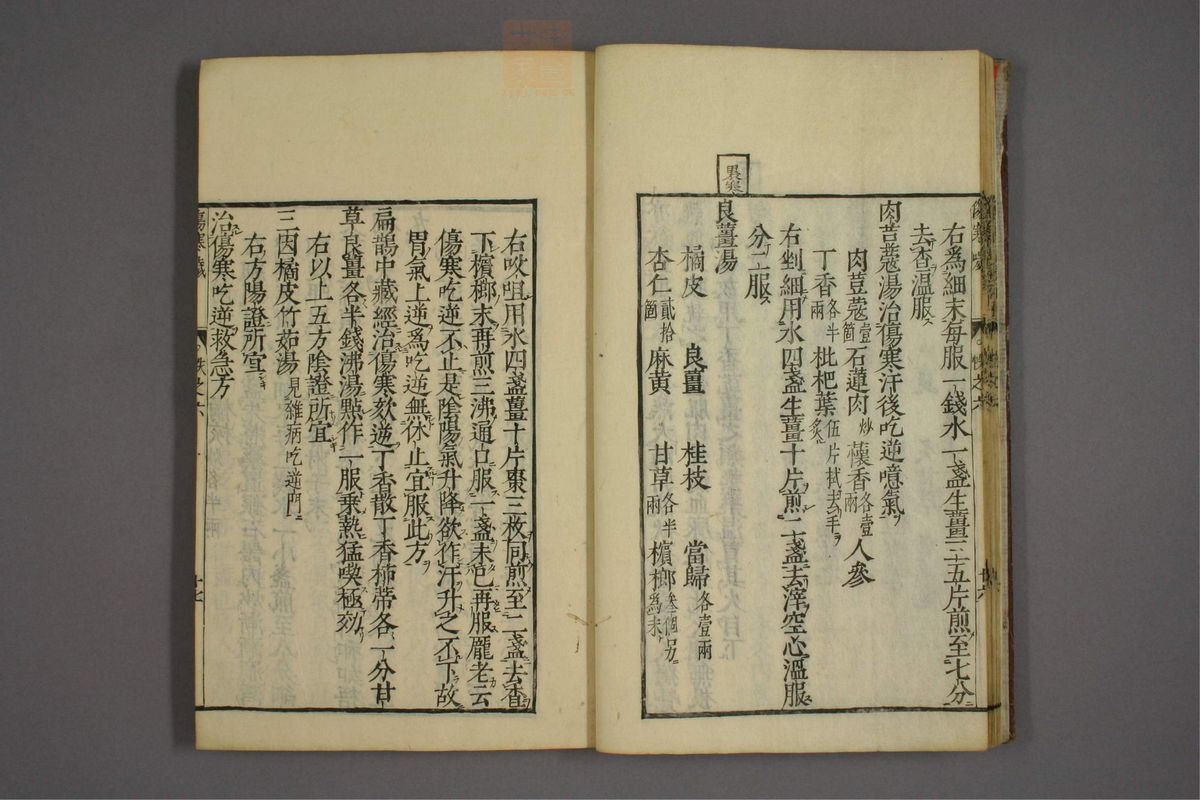 右爲細末每服一錢水一盞生薑三五片煎至七分
去查溫服
肉荳蔻湯治傷寒汗後吃逆噫氣
肉荳蔻壹箇石蓮肉炒 懷香各壹兩人參
丁香各半兩枇杷葉伍片拭去毛炙
右剉細用水四盞生薑十片煎二盞去滓空心溫服
分二服
良薑湯
橘皮 良薑 桂枝 當歸各壹兩
杏仁貳拾箇麻黃 甘草各半兩檳榔叄個另爲末
右㕮咀用水四盞薑十片棗三枚同煎至二盞去查
下檳榔末再煎三沸通口服一盞未已再服龐老云
傷寒吃逆不止是陰陽氣升降欲作汗升之不下故
胃氣上逆爲吃逆無休止宜服此方
扁鵲中藏經治傷寒欬逆丁香散丁香柿蔕各一分甘
草良薑各半錢沸湯㸃作一服乗熱猛喫極効
右以上五方陰證所宜
三因橘皮竹茹湯見雜病吃逆門
右方陽證所宜
治傷寒吃逆救急方
傷寒